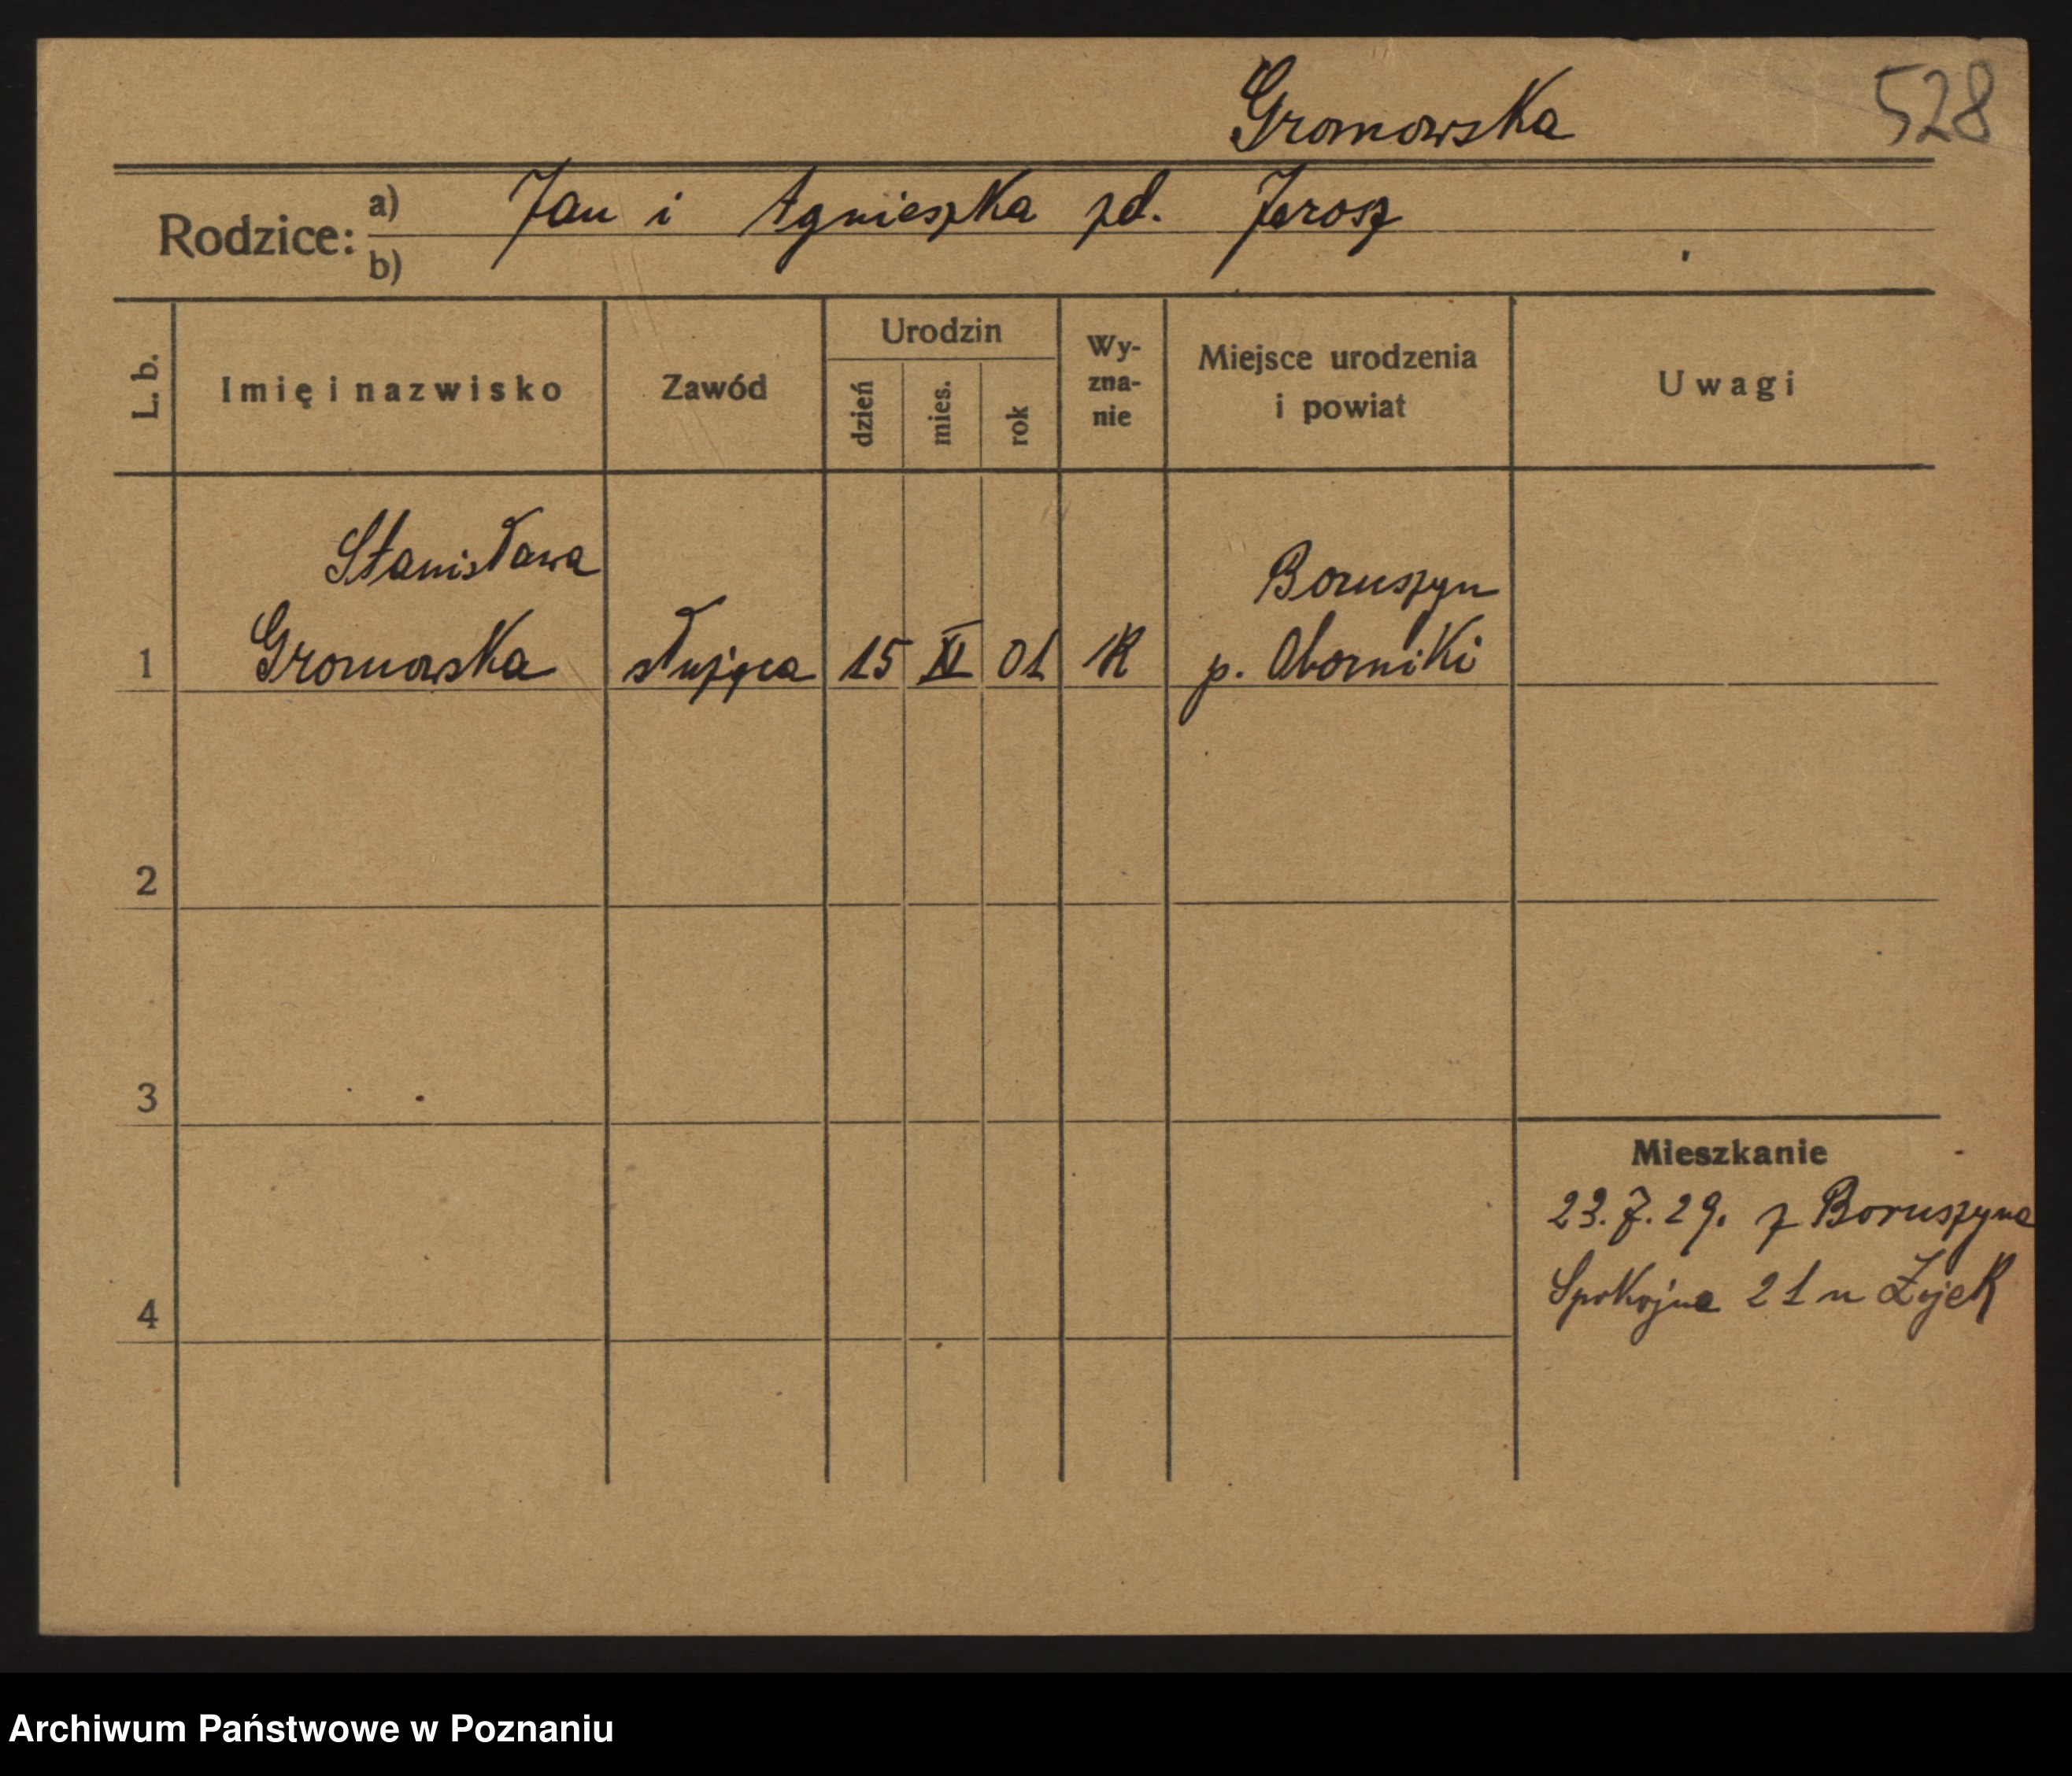 Gromowska 528
Rodzice: a) Jan i Agnieszka zd. Jarosz
b)
L. b. Imię i nazwisko Zawód Urodzin dzień mies. rok Wy-zna-nie Miejsce urodzenia i powiat Uwagi
Stanisława Boruszyn
1 Gromowska służąca 15 XI 01 K p. Oborniki
2
3
Mieszkanie
23. 7. 29. z Boruszyna
Spokojna 21 u
4
Archiwum Państwowe w Poznaniu